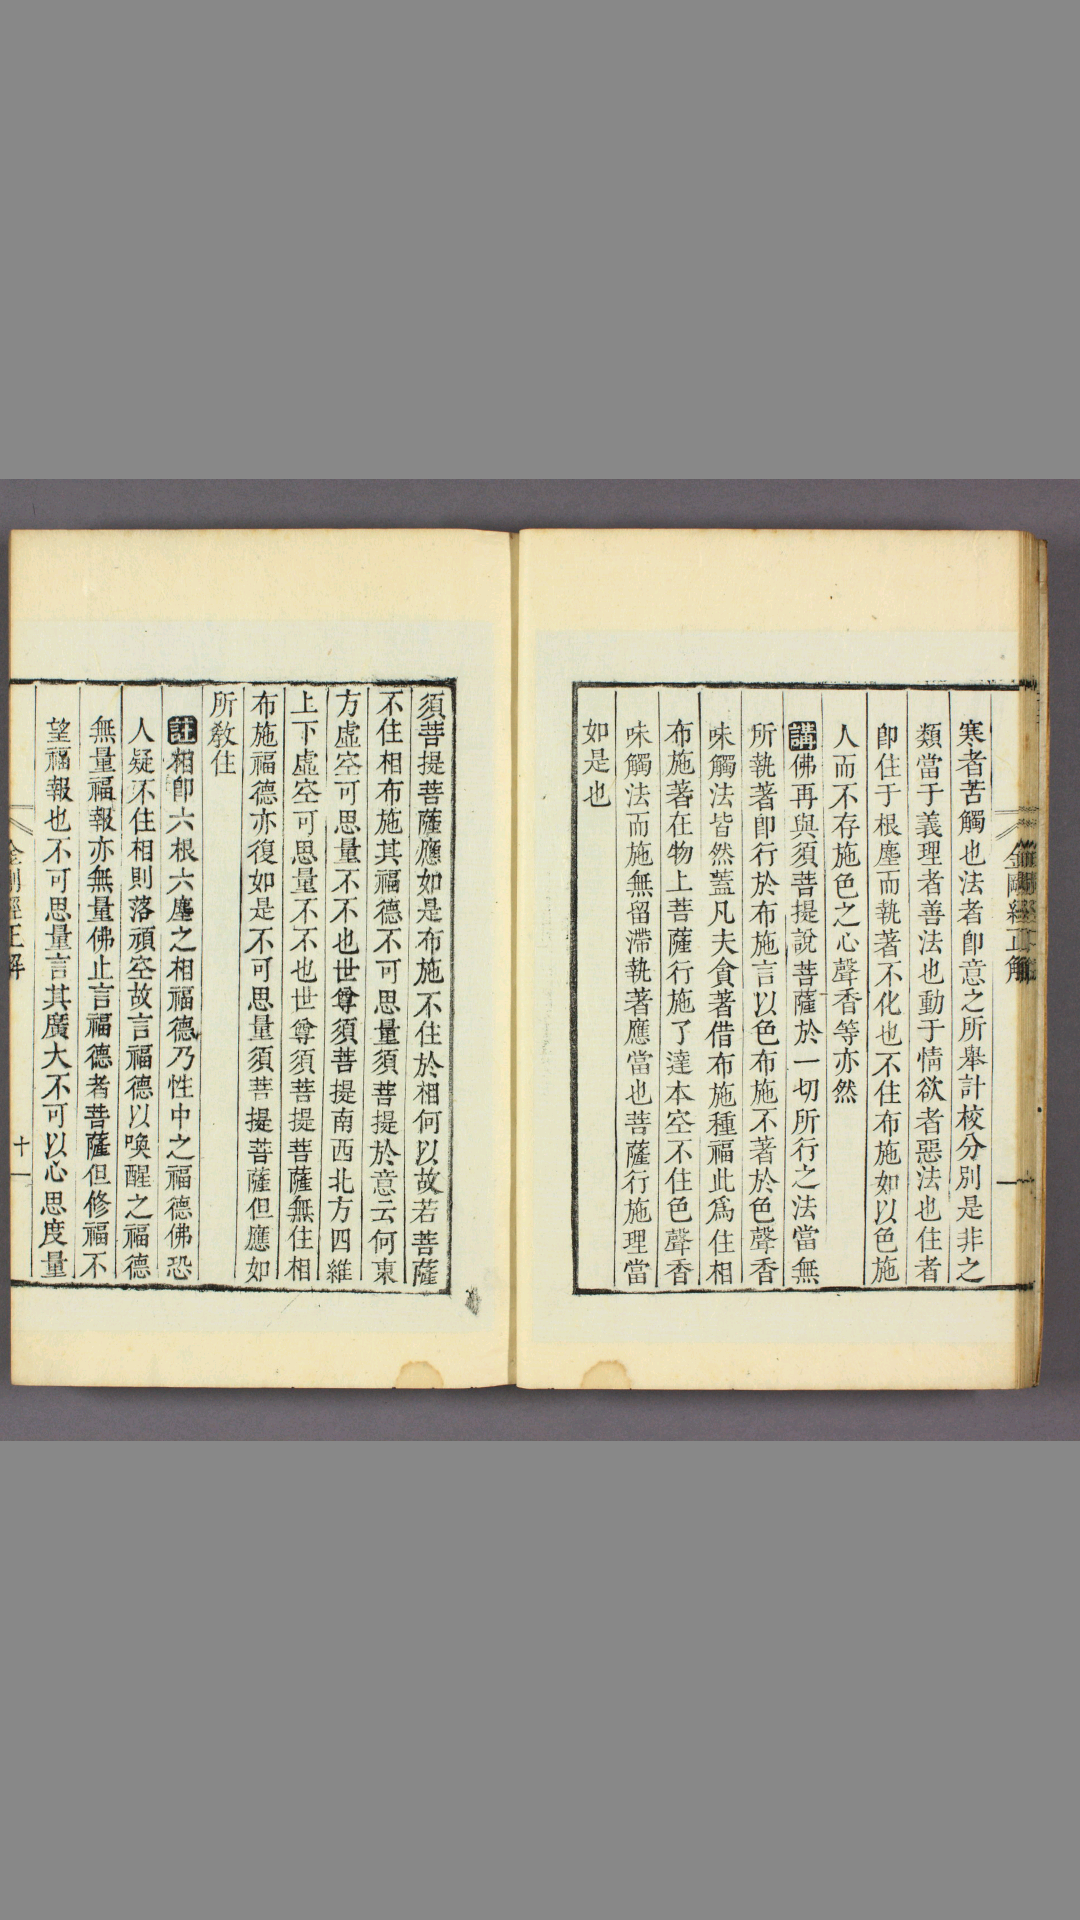 寒者苦觸也法者卽意之所舉計校分別是非之
類當于義理者善法也動于情欲者惡法也住者
卽住于根塵而執著不化也不住布施如以色施
人而不存施色之心聲香等亦然
講佛再與須菩提說菩薩於一切所行之法當無
所執著卽行於布施言以色布施不著於色聲香
味觸法皆然蓋凡夫貪著借布施種福此爲住相
布施著在物上菩薩行施了達本空不住色聲香
味觸法而施無留滯執著應當也菩薩行施理當
如是也
須菩提菩薩應如是布施不住於相何以故若菩薩
不住相布施其福德不可思量須菩提於意云何東
方虛空可思量不不也世尊須菩提南西北方四維
上下虛空可思量不不也世尊須菩提菩薩無住相
布施福德亦復如是不可思量須菩提菩薩但應如
所敎住
註相卽六根六塵之相福德乃性中之福德佛恐
人疑不住相則落頑空故言福德以喚醒之福德
無量福報亦無量佛止言福德者菩薩但修福不
望福報也不可思量言其廣大不可以心思度量
金剛經正解
十一